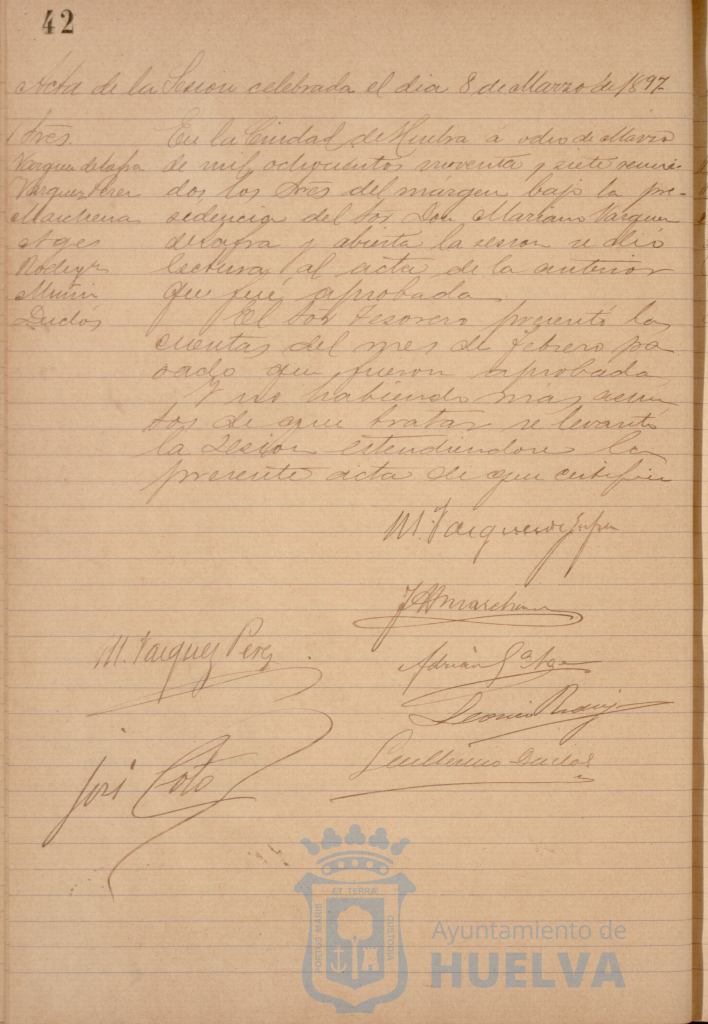 42
Acta de la Sesion celebrada el dia 8 de Marzo de 1897
Sres.
Vazquez de Zafra
Vazquez Perez
Marchena
Rodrigz
Muñiz
Duclos
En la Ciudad de Huelva á ocho de Marzo
de mil ochocientos noventa y siete reuni-
dos los Sres del márgen bajo la pre-
sidencia del Sor Don Mariano Vazquez
de Zafra y abierta la sesion se dió
lectura al acta de la anterior
que fué aprobada
El Sor Tesorero presentó las
cuentas del mes de Febrero pa
sado que fueron aprobada
Y no habiendo mas asun
tos de que tratar se levantó
la Sesion estendiendose la
presente acta de que certifico
M. Vazquez de Zafra
Marchena
M. Vazquez Perez
Adrián
Leoncio Rodrig
José Coto
Guillermo Duclos
ET TERRÆ
PORTUS MARIS
CUSTODIA
Ayuntamiento de
HUELVA